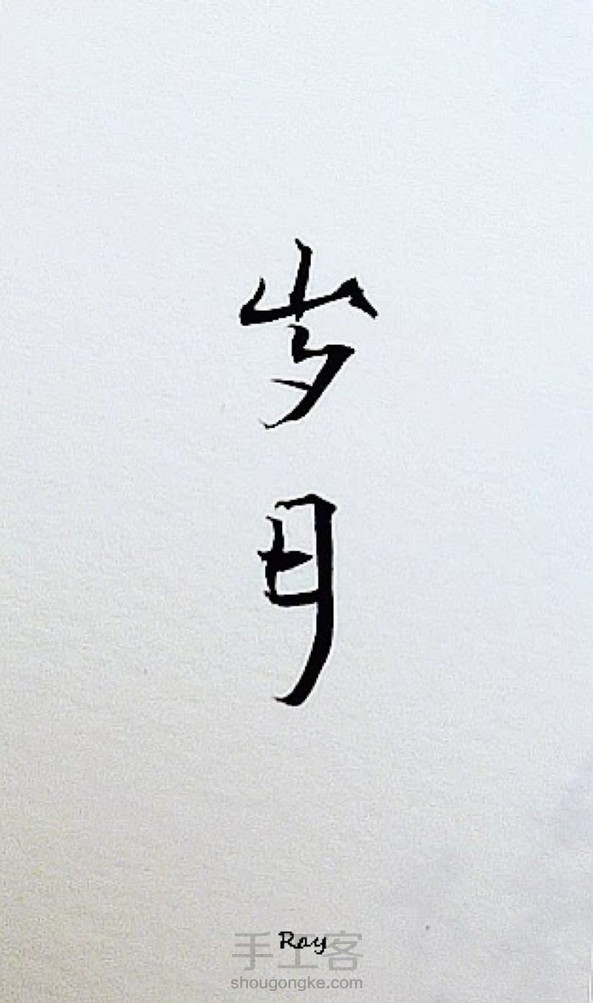 岁
月
Ray
手工客
shougongke.com